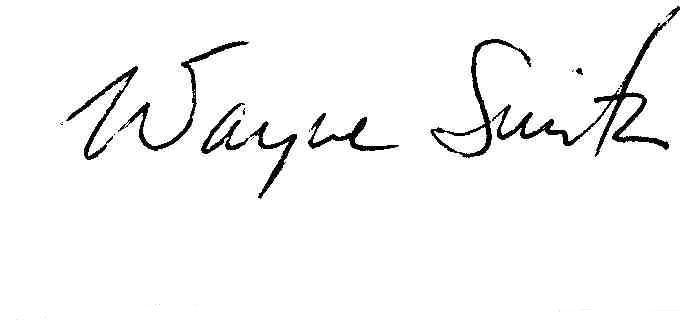 Wayne Smith